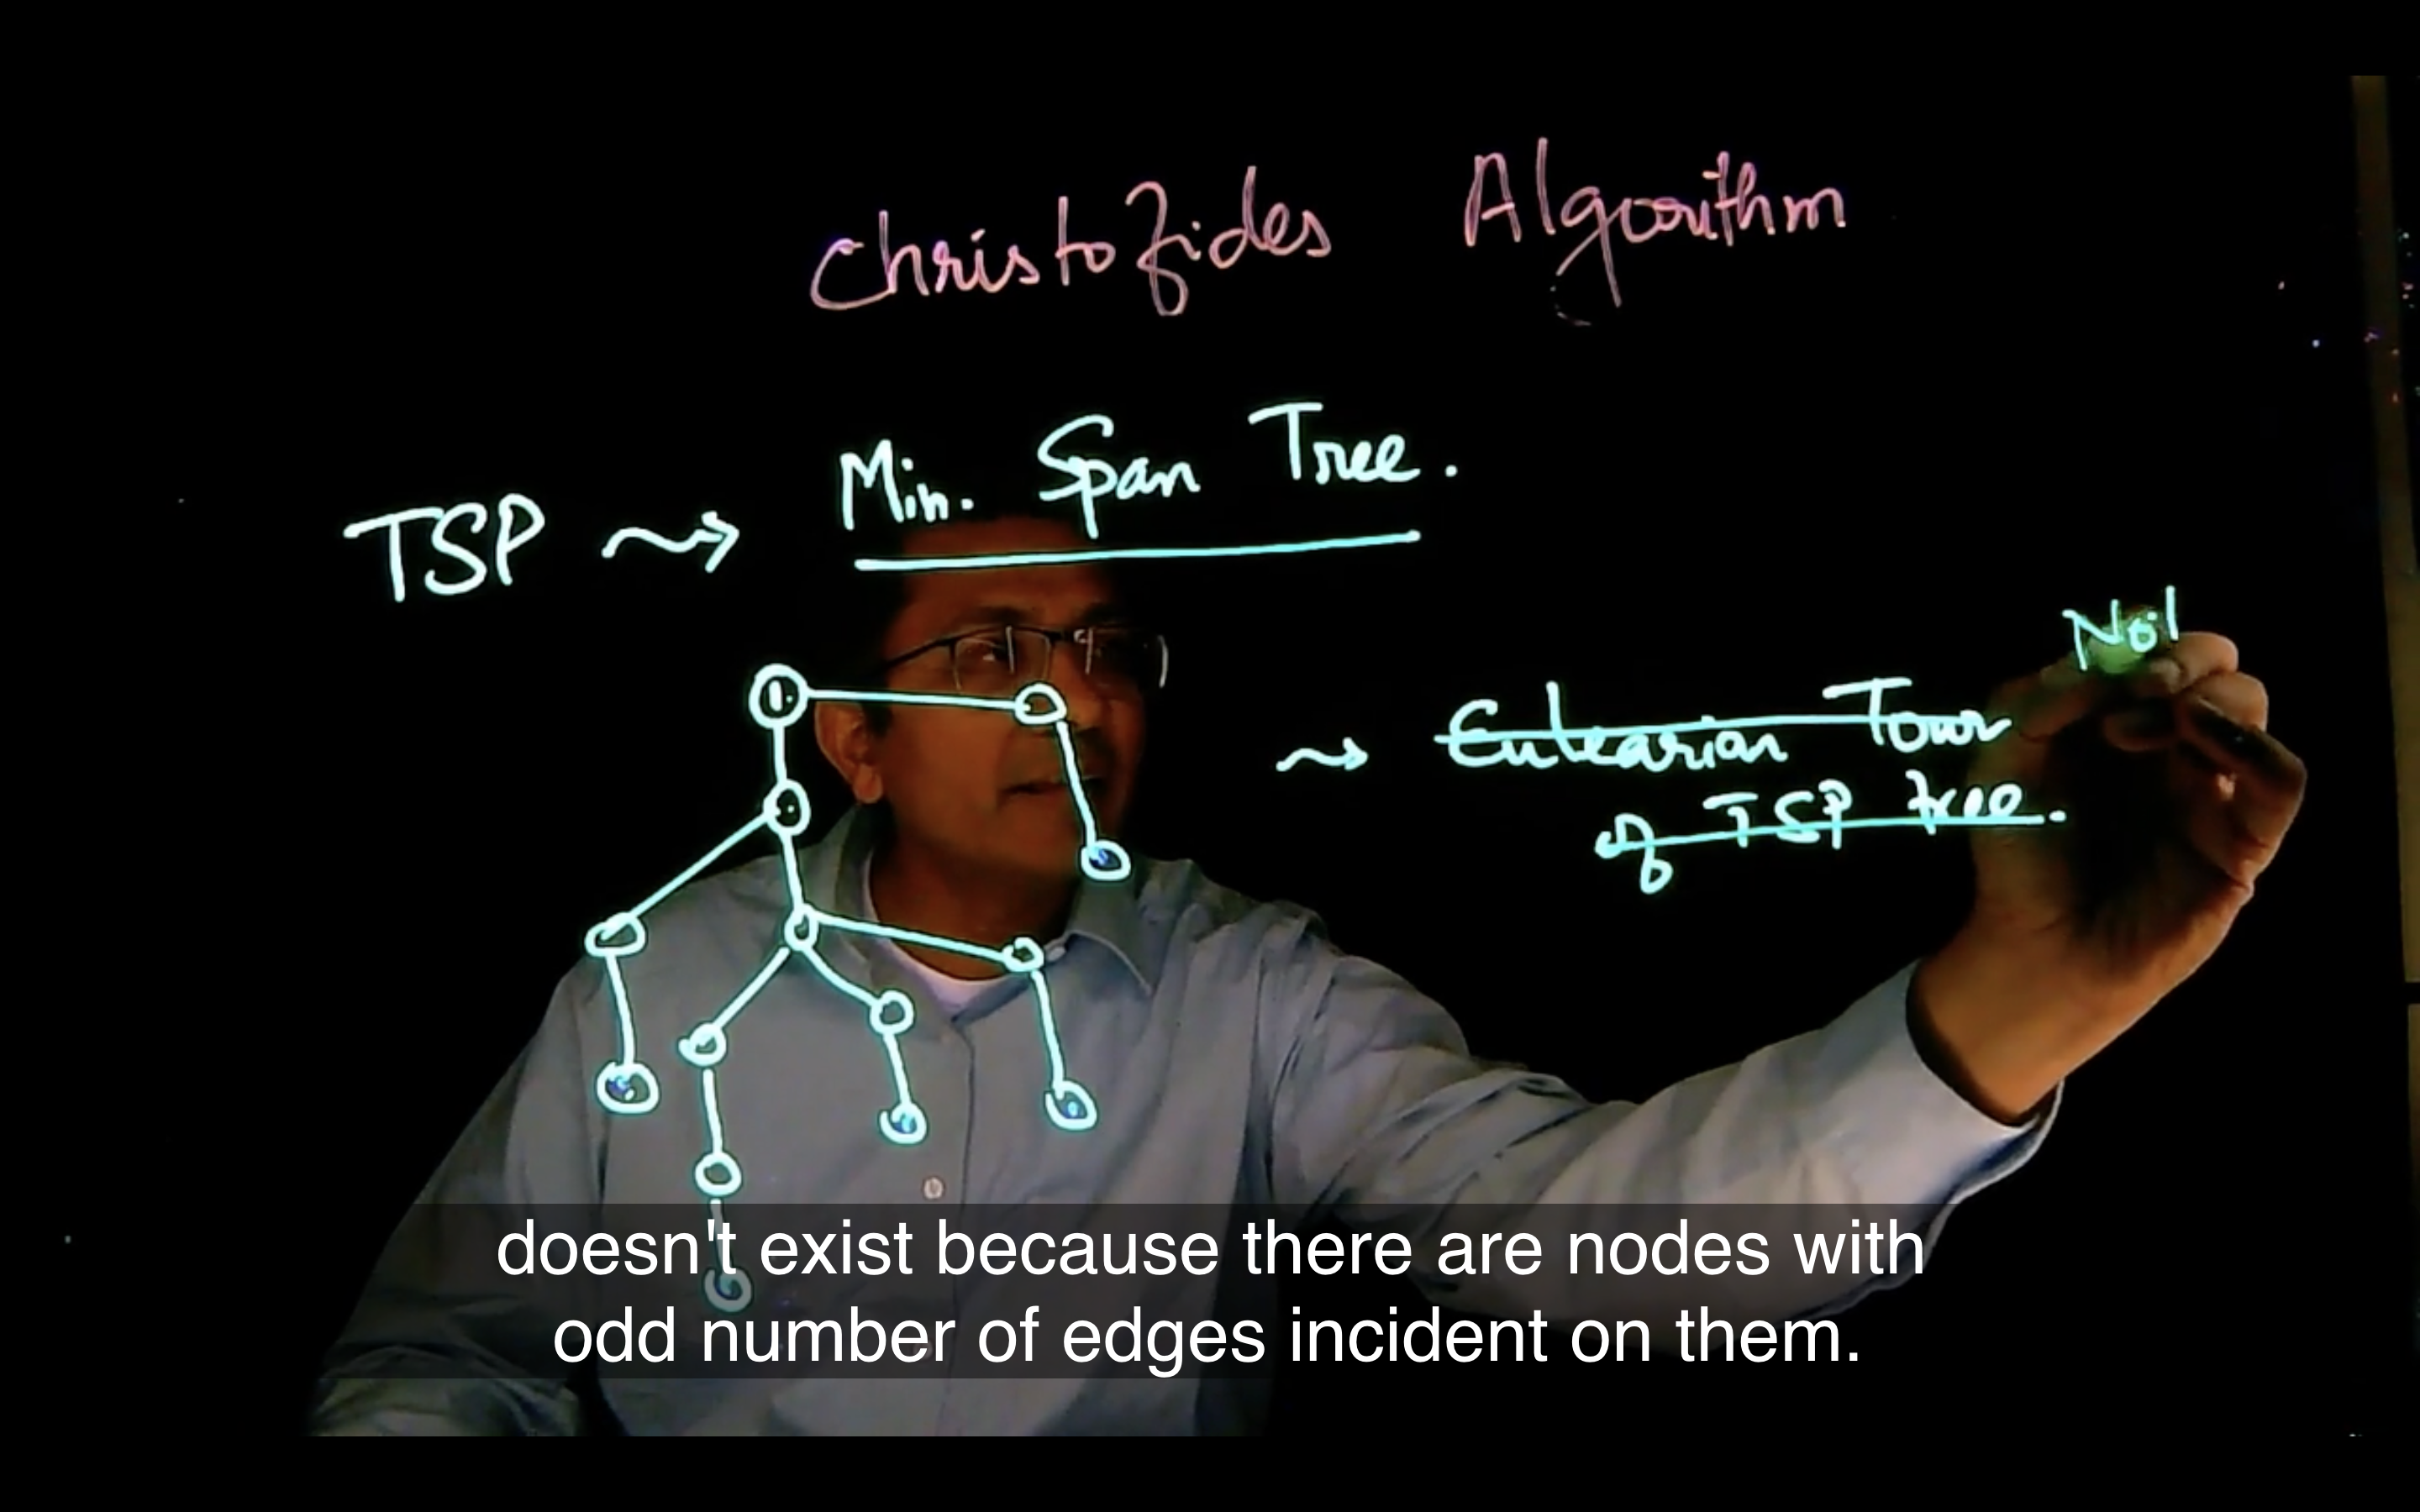 Christofides Algorithm
Min. Span Tree.
TSP
No!
Eulearian Tour
of TSP tree.
doesn't exist because there are nodes with
odd number of edges incident on them.